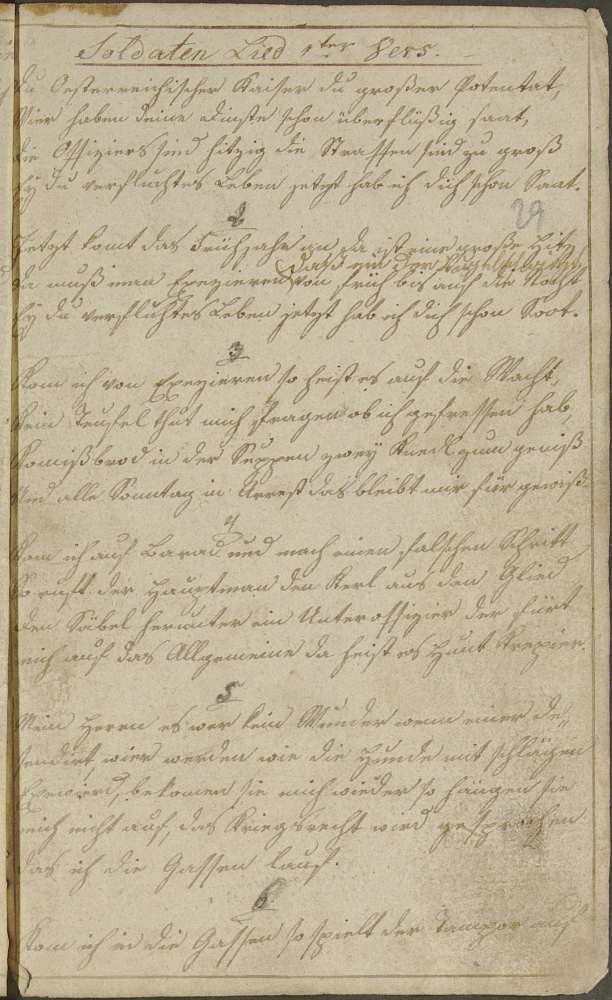 Soldaten Lied 1ter Vers.
Du Oesterreichischer Kaiser du großer Potentat,
Wier haben deine Dinste schon überflüßig saat,
die Offiziers sind hitzig die Strassen sind zu groß
Ey du verfluchtes Leben jetzt hab ich dich schon Saat.
2
29
Jetzt komt das Frühjahr an da ist eine große Hitz
daß ein der
da muß man Exezieren von früh bis auf die Nacht
Ey du verfluchtes Leben jetzt hab ich dich schon Soot.
3
Kom ich von Exezieren so heist es auf die Wacht,
Kein Teufel thut mich Fragen ob ich gefressen hab,
Komißbrod in der Suppen zwey Knedl zum geniß
Und alle Sonntag in Arrest das bleibt mir für gewiß.
4
Kom ich auf Barad und mach einen falschen Schritt
So ruft der Hauptman den Kerl aus den Glied
den Säbel herunter ein Unteroffizier der fürt
mich auf das Allgemeine da heist es Hunt Krepier.
5
Mein Herrn es wer kein Wunder wenn einer de-
sendirt wier werden wie die Hunde mit schlägen
Exezierd, bekomen sie mich wieder so hängen sie
mich nicht auf, das Kriegsrecht wird gesprochen
das ich die Gassen lauf.
6
Kom ich in die Gassen so spielt der Tampor auf